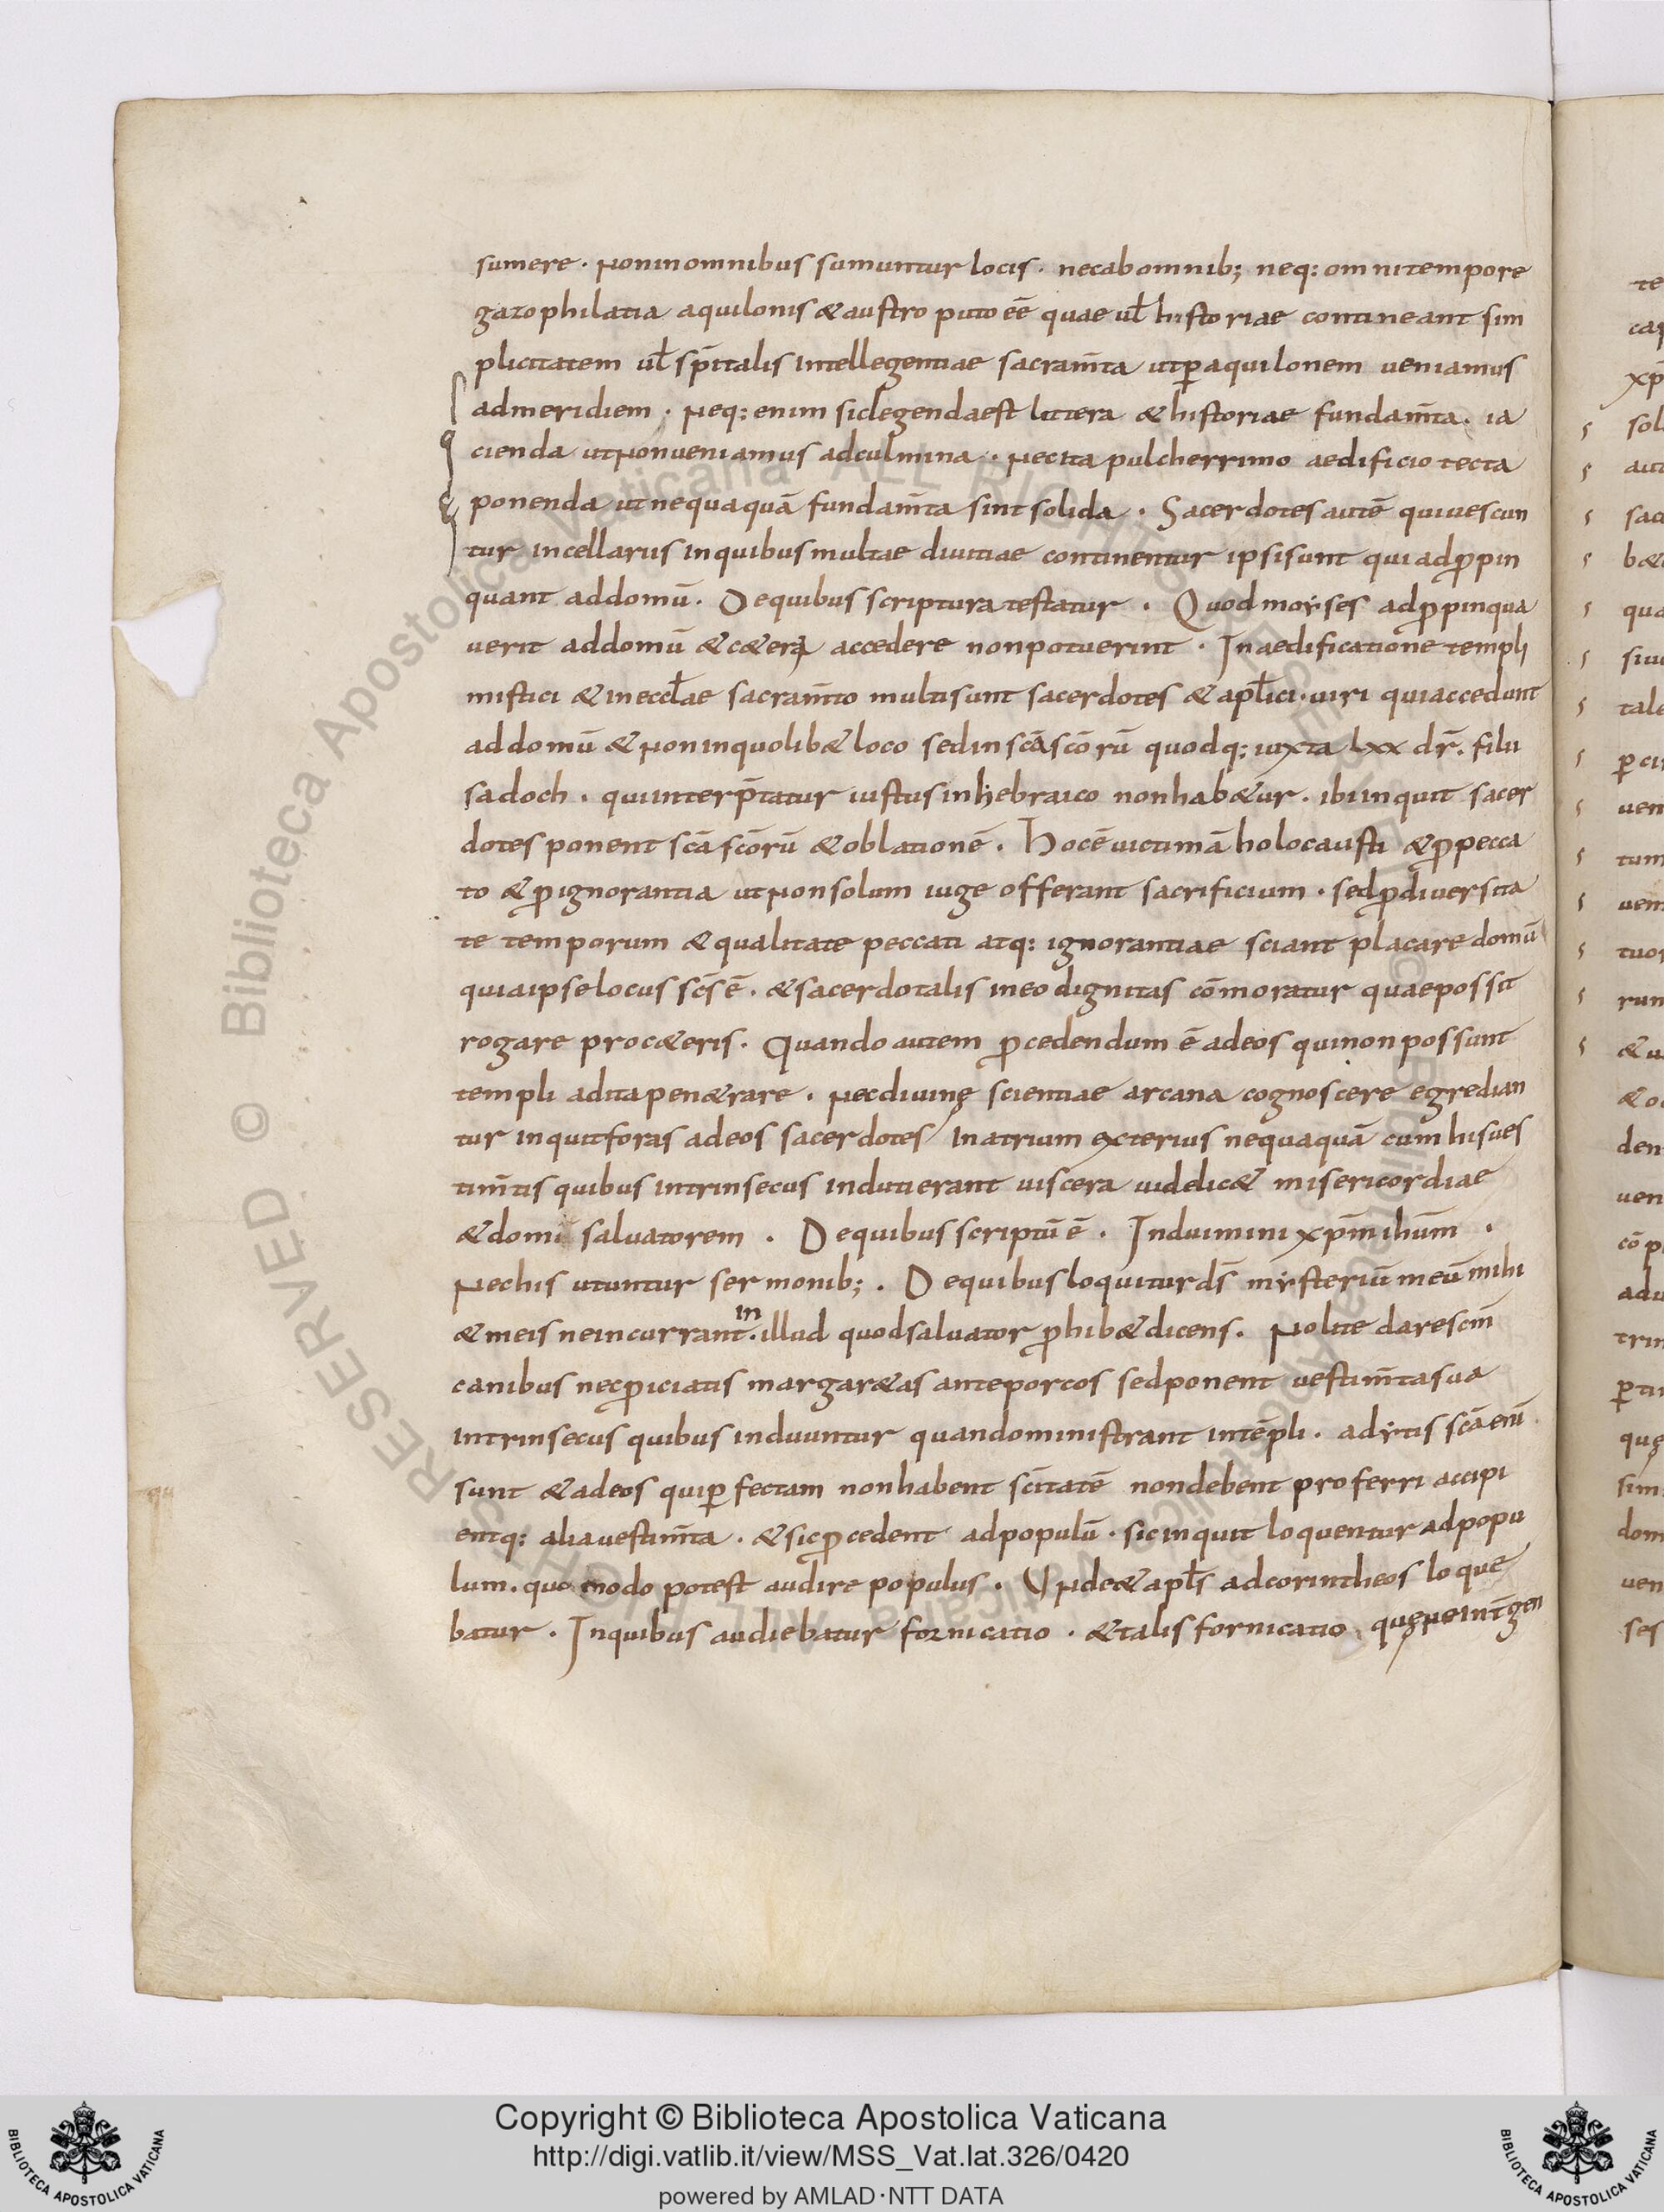 sumere · Non in omnibus sumuntur locis · nec ab omnib; neq: omni tempore
gazophilatia aquilonis & austro puto eē quae ul̄ historiae contineant sim
plicitatem ul̄ sp̄italis intellegentiae sacram̄ta ut p̱ aquilonem ueniamus
ad meridiem · Neq: enim sic legenda est littera & historiae fundam̄ta · ia
cienda ut non ueniamus ad culmina · Nec ita pulcherrimo aedificio tecta
ponenda ut nequaquā fundam̄ta sint solida · Sacerdotes autē qui uescun
tur in cellariis in quibus multae diuitiae continentur ipsi sunt qui adp̱pin
quant ad domū · De quibus scriptura testatur · Quod moẏses adp̱pinqua
uerit ad domū & c&eri accedere non potuerint · In aedificatione templi
mistici & in eccl̄ae sacram̄to multi sunt sacerdotes & apl̄ici · uiri qui accedunt
ad domū & non in quolib& loco sed in sc̄a sc̄orū quodq: iuxta lxx dr̄ · filii
sadoch · qui interp̄tatur iustus in hebraico non hab&ur · ibi inquit sacer
dotes ponent sc̄a sc̄orū & oblationē · Hoc ē uictimā holocausti & p̱ pecca
to & p̱ ignorantia ut non solum iuge offerant sacrificium · sed p̱ diuersita
te temporum & qualitate peccati atq: ignorantiae sciant placare domū
quia ipse locus sc̄s ē · & sacerdotalis in eo dignitas cōmoratur quae possit
rogare pro c&eris · Quando autem p̱cedendum ē ad eos qui non possunt
templi adita pen&rare · Nec diuinę scientiae arcana cognoscere egredian
tur inquit foras ad eos sacerdotes in atrium exterius nequaquā cum his ues
tim̄tis quibus intrinsecus induti erant uiscera uidelic& misericordiae
& domi saluatorem · De quibus scriptū ē · Induimini xp̄m ihūm ·
Nec his utuntur sermonib; · De quibus loquitur ds̄ mẏsteriū meū mihi
in
& meis ne incurrant · illud quod saluator p̱hib& dicens · Nolite dare sc̄m
canibus nec p̱iciatis margar&as ante porcos sed ponent uestim̄ta sua
intrinsecus quibus induuntur quando ministrant in tēpli · adẏtis sc̄a enī
sunt & ad eos qui p̱fectam non habent sc̄itatē non debent proferri accipi
entq: alia uestim̄ta · & sic p̱cedent ad populū · sic inquit loquentur ad popu
lum · quo modo potest audire populus · Unde & apl̄s ad corintheos loque
batur · In quibus audiebatur fornicatio · & talis fornicatio quę ne int̄ gen
Copyright © Biblioteca Apostolica Vaticana
http://digi.vatlib.it/view/MSS_Vat.lat.326/0420
powered by AMLAD·NTT DATA